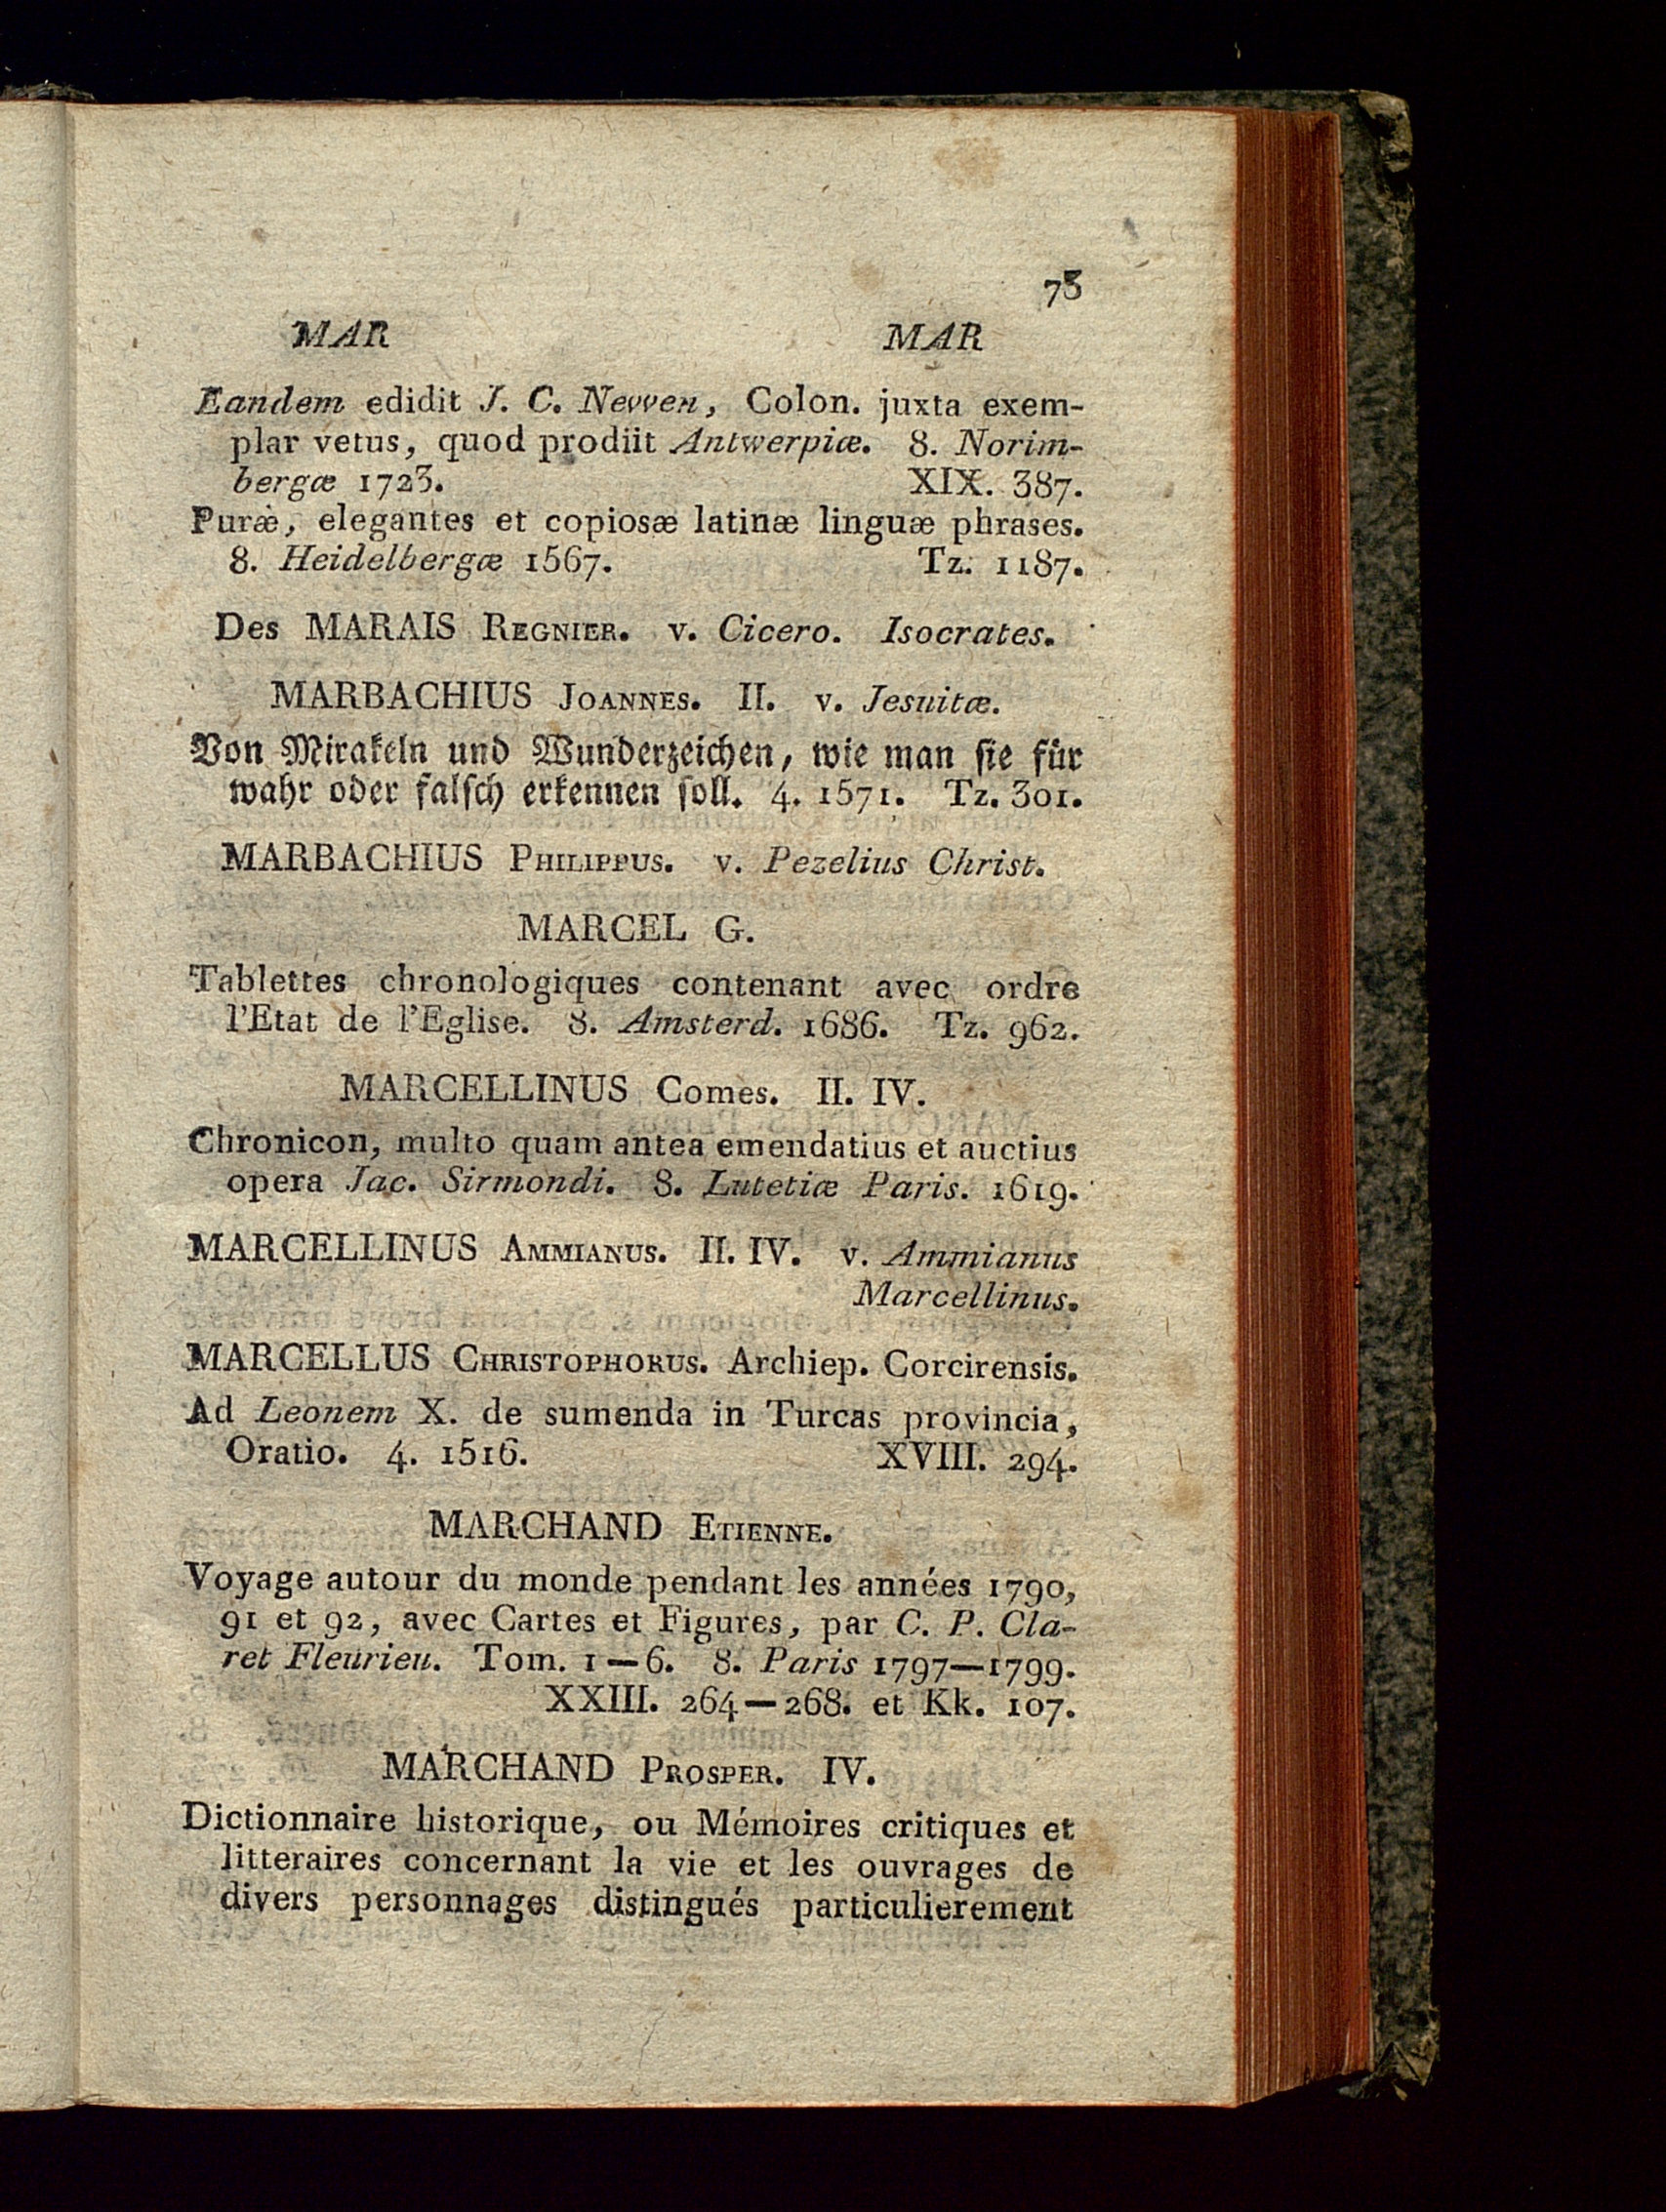 73
MAR MAR
Eandem edidit J. C. Nevven, Colon. juxta exem-
plar vetus, quod prodiit Antwerpiæ. 8. Norim-
bergæ 1723. XIX. 387.
Puræ, elegantes et copiosæ latinæ linguæ phrases.
8. Heidelbergæ 1567. Tz. 1187.
Des MARAIS REGNIER. v. Cicero. Isocrates.
MARBACHIUS JOANNES. II. v. Jesuitæ.
Von Mirakeln und Wunderzeichen, wie man sie für
wahr oder falsch erkennen soll. 4. 1571. Tz. 301.
MARBACHIUS PHILIPPUS. v. Pezelius Christ.
MARCEL G.
Tablettes chronologiques contenant avec ordre
l'Etat de l'Eglise. 8. Amsterd. 1686. Tz. 962.
MARCELLINUS Comes. II. IV.
Chronicon, multo quam antea emendatius et auctius
opera Jac. Sirmondi. 8. Lutetiæ Paris. 1619.
MARCELLINUS AMMIANUS. II. IV. v. Ammianus
Marcellinus.
MARCELLUS CHRISTOPHORUS. Archiep. Corcirensis.
Ad Leonem X. de sumenda in Turcas provincia,
Oratio. 4. 1516. XVIII. 294.
MARCHAND ETIENNE.
Voyage autour du monde pendant les années 1790,
91 et 92, avec Cartes et Figures, par C. P. Cla-
ret Fleurieu. Tom. 1—6. 8. Paris 1797—1799.
XXIII. 264—268. et Kk. 107.
MARCHAND PROSPER. IV.
Dictionnaire historique, ou Mémoires critiques et
litteraires concernant la vie et les ouvrages de
divers personnages distingués particulierement